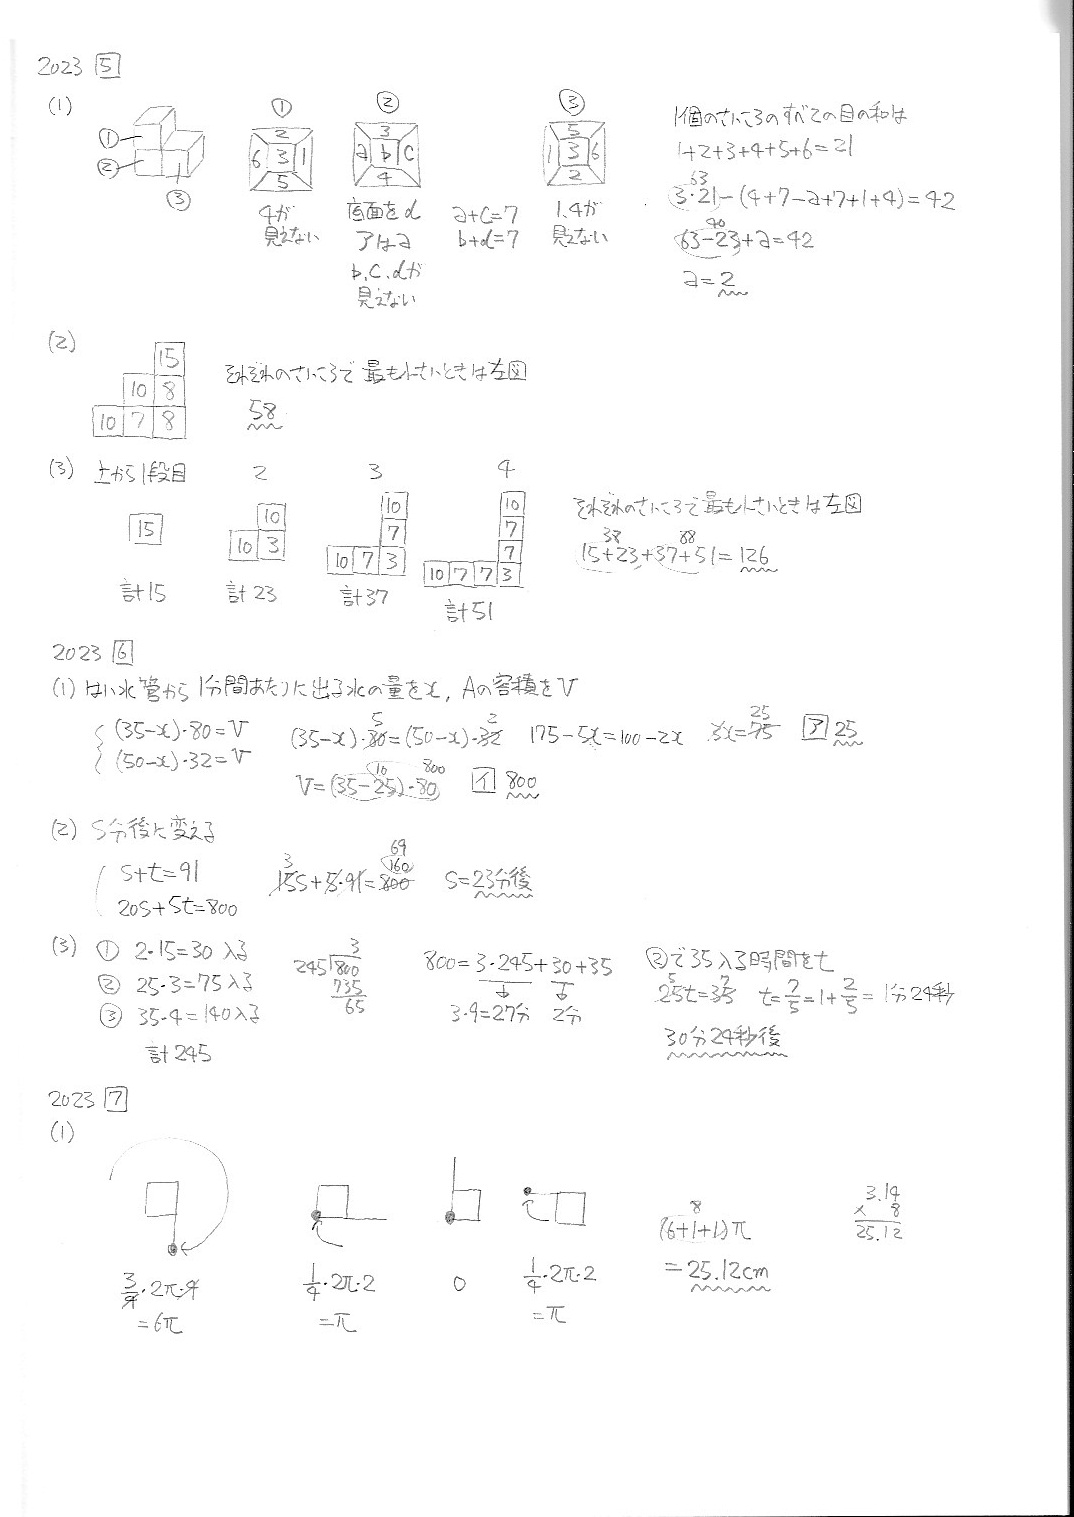 2023 5
(1)
① ② ③
① ② ③
2 6 3 1 5
3 a b c 4
5 1 3 6 2
4が
見えない
底面をd
アはa
b,c,dが
見えない
a+c=7
b+d=7
1,4が
見えない
1個のさいころのすべての目の和は
1+2+3+4+5+6=21
63
3・21-(4+7-a+7+1+4)=42
40
63-23+a=42
a=2
(2)
15
10 8
10 7 8
それぞれのさいころで最も小さいときは左図
58
(3) 上から1段目 2 3 4
15
10
10 3
10
7
10 7 3
10
7
7
10 7 7 3
計15 計23 計37 計51
それぞれのさいころで最も小さいときは左図
38 88
15+23+37+51=126
2023 6
(1) はい水管から1分間あたりに出る水の量をx, Aの容積をV
(35-x)・80=V
(50-x)・32=V
5 2
(35-x)・80=(50-x)・32 175-5x=100-2x
25
3x=75 ア 25
10 800
V=(35-25)・80 イ 800
(2) S分後に変える
s+t=91
20s+5t=800
69
3 160
15s+5・91=800 s=23分後
(3) ① 2・15=30入る
② 25・3=75入る
③ 35・4=140入る
計245
3
245 800
735
65
800=3・245+30+35
3・9=27分 2分
②で35入る時間をt
5 7
25t=35 t=7/5=1+2/5=1分24秒
30分24秒後
2023 7
(1)
3/4・2π・4
=6π
1/4・2π・2
=π
0
1/4・2π・2
=π
8
(6+1+1)π
=25.12cm
3.14
× 8
25.12